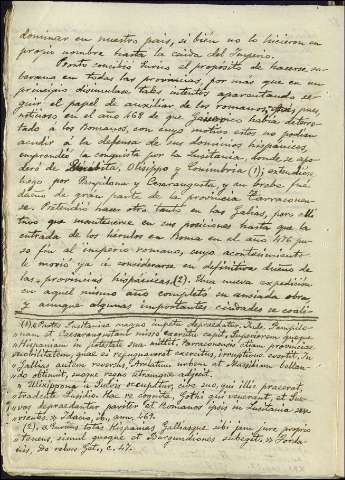 dominar en nuestro pais, si bien no lo hicieron en
propio nombre hasta la caida del Imperio.
Pronto concibió Eurico el propósito de hacerse so-
berano en todas las provincias, por más que en un
principio disimulase tales intentos aparentando se-
guir el papel de auxiliar de los romanos, pues
noticioso en el año 468 de que había derro-
tado á los Romanos, con cuyo motivo estos no podian
acudir á la defensa de sus dominios hispánicos,
emprendió la conquista por la Lusitania, donde se apo-
deró de Olisippo y Conimbria (1); extendióse
luego por Pampilona y Cesaraugusta, y en breve fué
dueño de gran parte de la provincia Tarraconen-
se. Pretendió hacer otro tanto en las Galias, pero
tuvo que mantenerse en sus posiciones hasta que la
entrada de los hérulos en Roma en el año 476 pu-
so fin al imperio romano, cuyo acontecimiento
le movió ya á considerarse en definitiva dueño de
las provincias hispánicas (2). Una nueva expedicion
en aquel mismo año completó su ansiada obra,
y aunque algunas importantes ciudades se coali-
(1) Lusitaniæ magno impetu depraedatur. Inde Pampilo-
nam et Caesaraugustam misso exercitu capit, Superiorem quoque
Hispaniam in potestate sua mittit. Tarraconensis etiam provinciae
nobilitatem, quae ei repugnaverat exercitus irruptione evertit. In
Gallias autem reversus, Arelatum urbem et Massiliam bellan-
do obtinuit, suoque regno utramque adjecit.
Ulisippona a Suevis occupatur, cive suo, qui illic praeerat,
tradente Lusidio. Hac re cognita, Gothi qui venerant, et Sue-
vos depraedantur pariter et Romanos ipsis in Lusitania ser-
vientes. » Idacio, año 469.
(2). « Euricus totas Hispanias Galliasque sibi jam jure proprio
tenens, simul quoque et Burgundiones subegit. » Jorda-
nis, De rebus Get., c. 47.